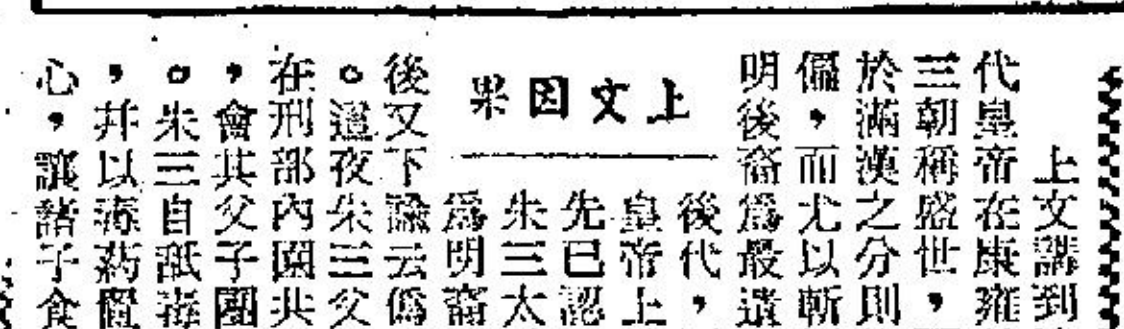 上文講到
代皇帝在康雍
三朝稱盛世，
於滿漢之分則
偏，而尤以斬
明後裔爲最遺
上文因果
後代，
皇帝上
先已認
朱三太
爲明裔
後又下諭云僞
。這夜朱三父
在刑部內園共
，會其父子團
。朱三自舐毒
，并以毒葯置
心，讓諸子食